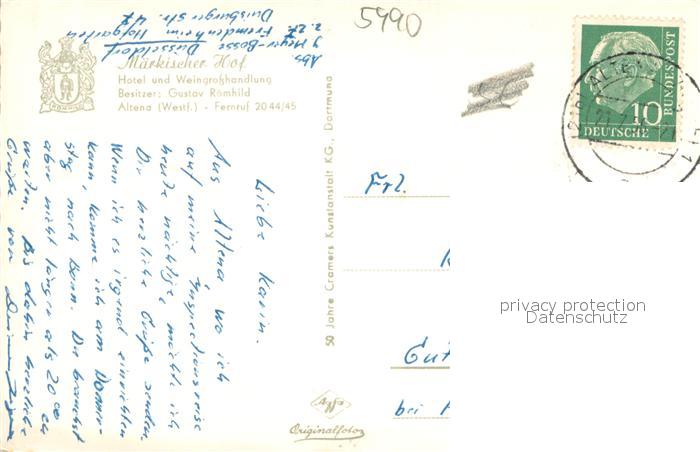 Abs.
J Meyer-Bosse Düsseldorf
z. Zt. Fremdenheim Hofgarten
Duisburger Str. 47
5990
Märkischer Hof
Hotel und Weingroßhandlung
Besitzer: Gustav Römhild
Altena (Westf.) - Fernruf 20 44/45
RÖMHILD
Liebe Karin.
Aus Altena wo ich
auf meine Inspectionsreise
heute nächtige möchte ich
Dir herzliche Grüße senden.
Wenn ich es irgend einrichten
kann, komme ich am Donner-
stag nach Bonn. Du brauchst
aber nicht länger als 20°° zu
warten. Bis dahin herzliche
Grüße von
50 Jahre Cramers Kunstanstalt KG., Dortmund
Agfa
Originalfoto
DEUTSCHE
BUNDESPOST
10
ALTENA
Frl.
Gut
bei
privacy protection
Datenschutz